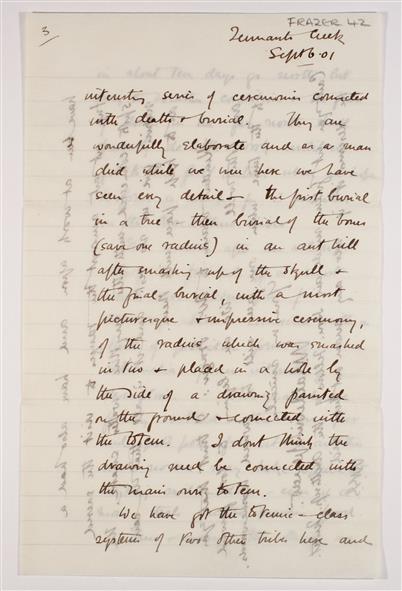 3
FRAZER 42
Tennants Creek
Sept 6. 01
interesting series of ceremonies connected
with death & burial. They are
wonderfully elaborate and as a man
died while we were here we have
seen every detail – the first burial
in a tree – then burial of the bones
(save one radius) in an ant hill
after smashing up of the skull &
the final burial, with a most
picturesque & impressive ceremony,
of the radius which was smashed
in two & placed in a hole by
the side of a drawing painted
on the ground & connected with
the totem. I dont think the
drawing need be connected with
the mans own totem.
We have got the totemic – class
systems of two other tribes here and